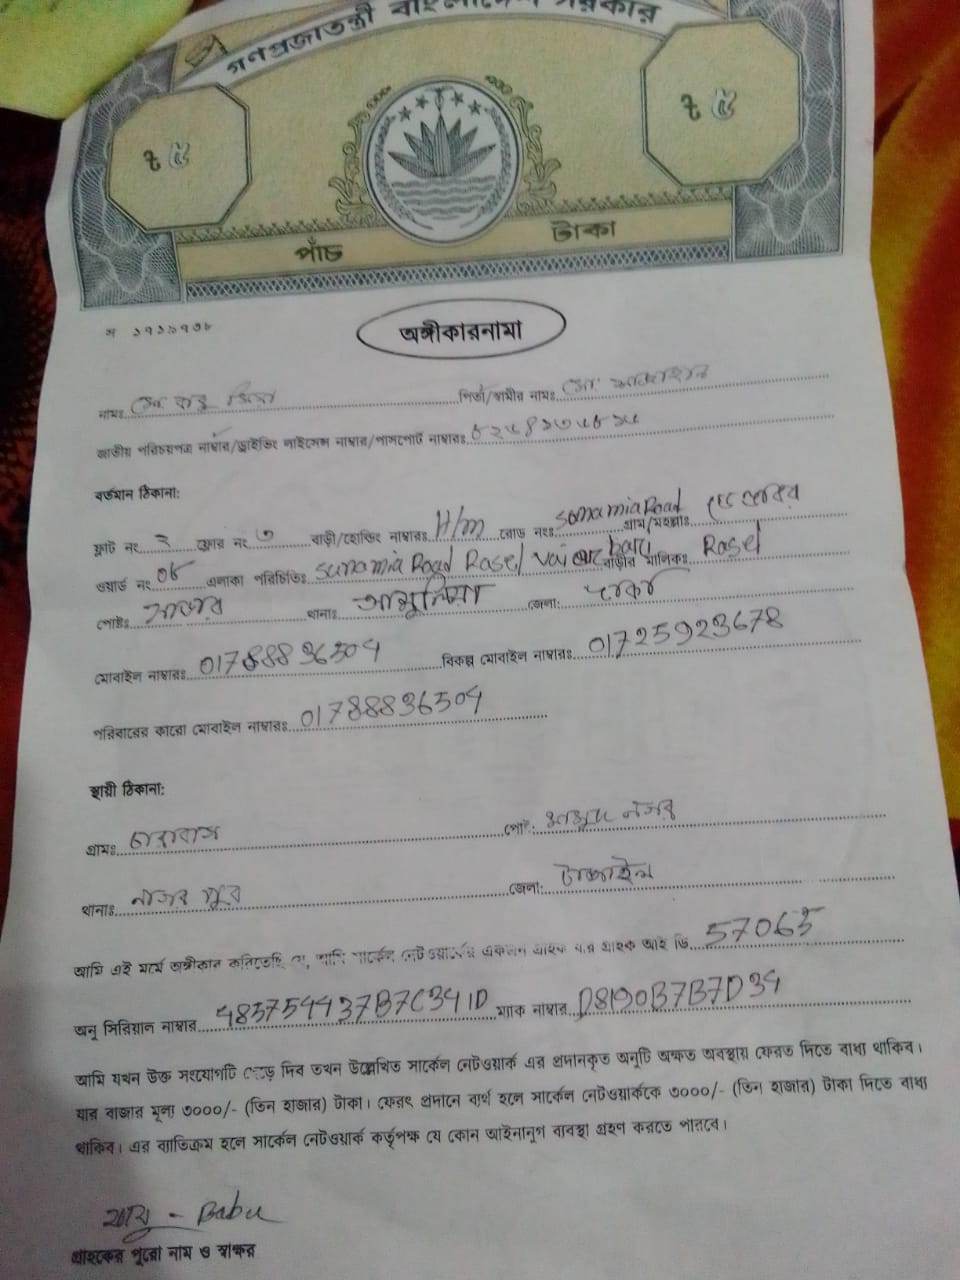 গণপ্রজাতন্ত্রী বাংলাদেশ সরকার
৳ ৫ ৳ ৫
পাঁচ টাকা
অঙ্গীকারনামা
নামঃ মোঃ বাবু মিয়া পিতা/স্বামীর নামঃ মোঃ
জাতীয় পরিচয়পত্র নাম্বার/ড্রাইভিং লাইসেন্স নাম্বার/পাসপোর্ট নাম্বারঃ
বর্তমান ঠিকানা:
ফ্লাট নং ২ ফ্লোর নং ৩ বাড়ী/হোল্ডিং নাম্বারঃ H/m রোড নংঃ sonamia Road গ্রাম/মহল্লাঃ
ওয়ার্ড নং 08 এলাকা পরিচিতিঃ sunamia Road Rasel vai er bari বাড়ীর মালিকঃ Rasel
পোষ্টঃ সাভার থানাঃ আশুলিয়া জেলা: ঢাকা
মোবাইল নাম্বারঃ 01788836504 বিকল্প মোবাইল নাম্বারঃ 01725923678
পরিবারের কারো মোবাইল নাম্বারঃ 01788836504
স্থায়ী ঠিকানা:
গ্রামঃ পোষ্ট:
থানাঃ নাগরপুর জেলা: টাঙ্গাইল
আমি এই মর্মে অঙ্গীকার করিতেছি যে, আমি সার্কেল নেটওয়ার্কের একজন গ্রাহক যার গ্রাহক আই ডি 57065
অনু সিরিয়াল নাম্বার 485754437B7C341D ম্যাক নাম্বার D8190B7B7D34
আমি যখন উক্ত সংযোগটি ছেড়ে দিব তখন উল্লেখিত সার্কেল নেটওয়ার্ক এর প্রদানকৃত অনুটি অক্ষত অবস্থায় ফেরত দিতে বাধ্য থাকিব।
যার বাজার মূল্য ৩০০০/- (তিন হাজার) টাকা। ফেরৎ প্রদানে ব্যর্থ হলে সার্কেল নেটওয়ার্ককে ৩০০০/- (তিন হাজার) টাকা দিতে বাধ্য
থাকিব। এর ব্যতিক্রম হলে সার্কেল নেটওয়ার্ক কর্তৃপক্ষ যে কোন আইনানুগ ব্যবস্থা গ্রহণ করতে পারবে।
বাবু - Babu
গ্রাহকের পুরো নাম ও স্বাক্ষর